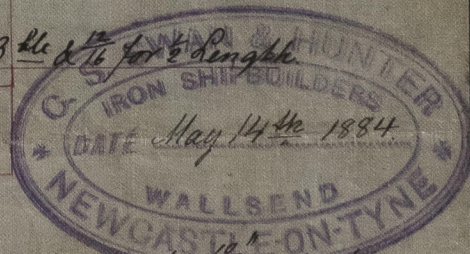 & 12/16 for 1/2 Length.
C. S. SWAN & HUNTER
IRON SHIPBUILDERS
DATE May 14th 1884
WALLSEND
NEWCASTLE-ON-TYNE